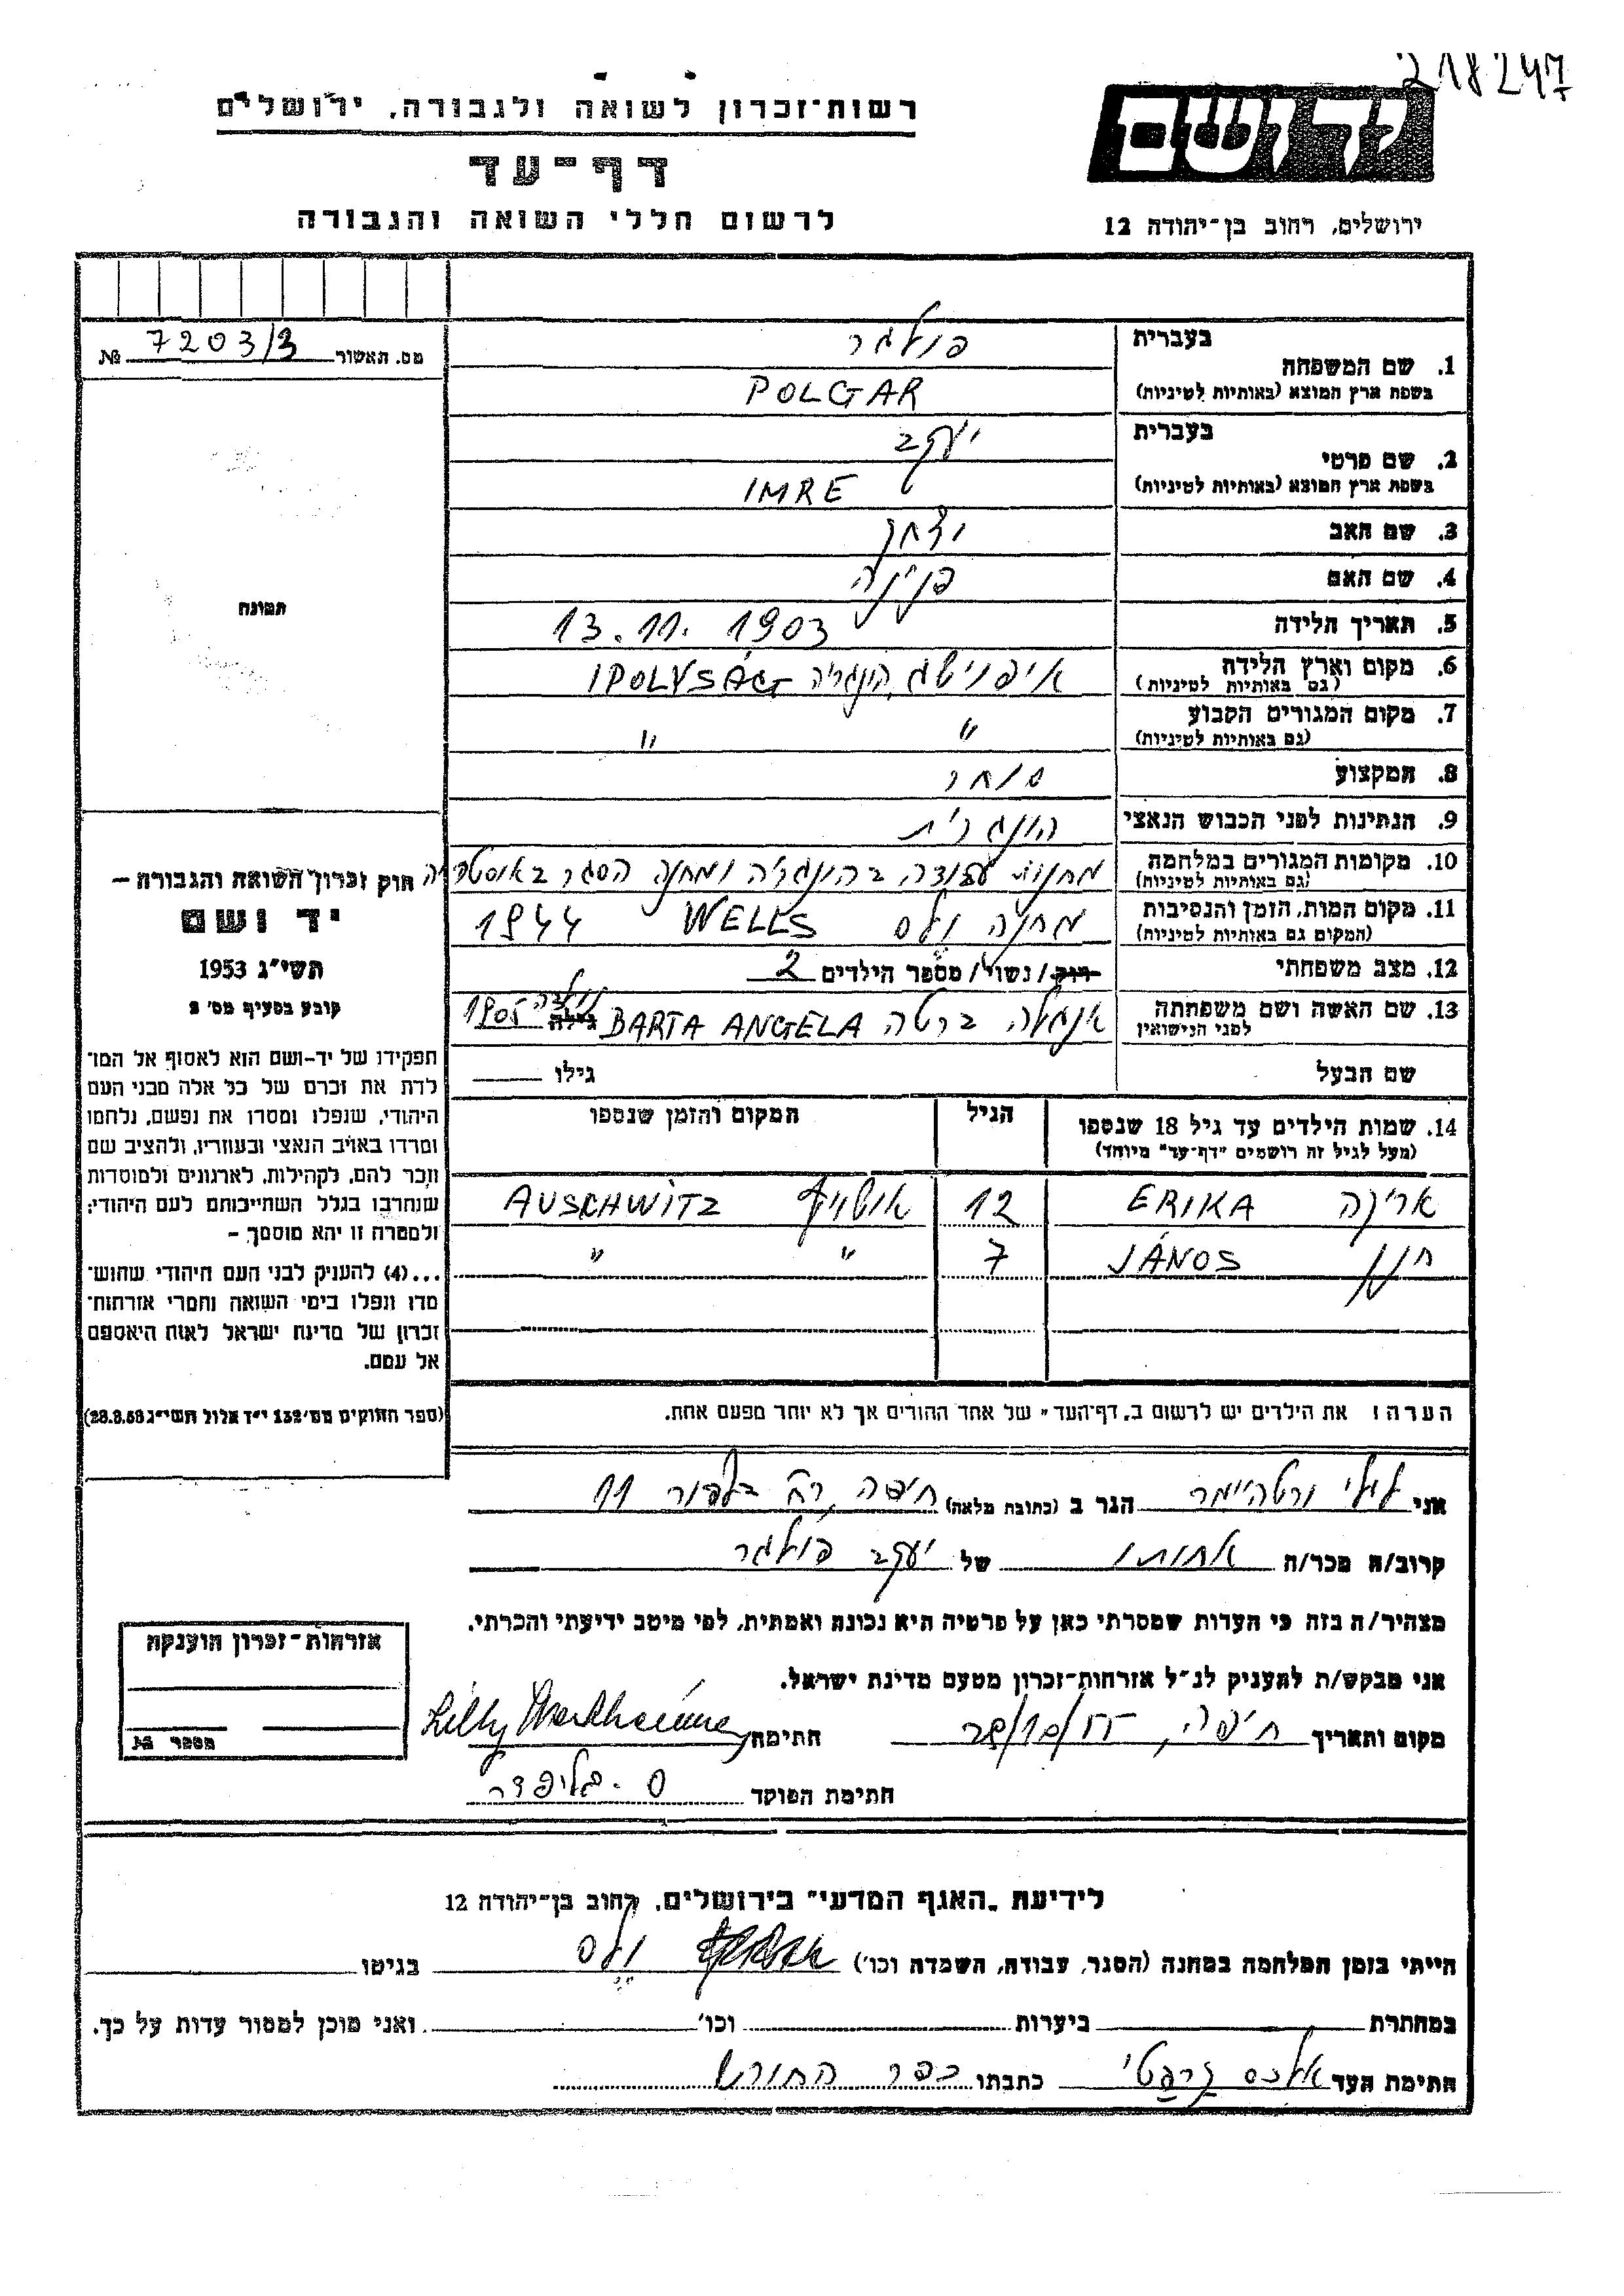 218247
רשות-זכרון לשואה ולגבורה, ירושלים
דף-עד
לרשום חללי השואה והגבורה
יד ושם
ירושלים, רחוב בן-יהודה 12
מס. תאשור 7203/3 №
תמונה
חוק זכרון השואה והגבורה –
יד ושם
תשי"ג 1953
קובע בסעיף מס' 2
תפקידו של יד-ושם הוא לאסוף אל המו־
לדת את זכרם של כל אלה מבני העם
היהודי, שנפלו ומסרו את נפשם, נלחמו
ומרדו באויב הנאצי ובעוזריו, ולהציב שם
וזכר להם, לקהילות, לארגונים ולמוסדות
שנחרבו בגלל השתייכותם לעם היהודי;
ולמטרה זו יהא מוסמך –
...(4) להעניק לבני העם היהודי שהוש־
מדו ונפלו בימי השואה והמרי אזרחות־
זכרון של מדינת ישראל לאות היאספם
אל עמם.
(ספר החוקים מס' 132 י"ז אלול תשי"ג 28.8.53)
בעברית פולגר
1. שם המשפחה
בשפת ארץ המוצא (באותיות לטיניות) POLGAR
בעברית יעקב
2. שם פרטי
בשפת ארץ המוצא (באותיות לטיניות) IMRE
3. שם האב יצחק
4. שם האם פנינה
5. תאריך הלידה 13.11.1903
6. מקום וארץ הלידה
(גם באותיות לטיניות) איפוישג, הונגריה IPOLYSÁG
7. מקום המגורים הקבוע
(גם באותיות לטיניות) " "
8. המקצוע סוחר
9. הנתינות לפני הכבוש הנאצי הונגרית
10. מקומות המגורים במלחמה
(גם באותיות לטיניות) מחנות עבודה בהונגריה ומחנה הסגר באוסטריה
11. מקום המות, הזמן והנסיבות
(המקום גם באותיות לטיניות) מחנה ולס WELLS 1944
12. מצב משפחתי רוק/נשוי/מספר הילדים 2
13. שם האשה ושם משפחתה
לפני הנישואין אנגלה ברטה BARTA ANGELA גילה נולדה 1905
שם הבעל גילו
14. שמות הילדים עד גיל 18 שנספו הגיל המקום והזמן שנספו
(מעל לגיל זה רושמים "דף-עד" מיוחד)
אריקה ERIKA 12 אושויץ AUSCHWITZ
חנן JÁNOS 7 " "
הערה: את הילדים יש לרשום ב"דף-העד" של אחד ההורים אך לא יותר מפעם אחת.
אני לילי ורטהיימר הגר ב (כתובת מלאה) חיפה, רח' בלפור 11
קרוב/ה מכר/ה אחותו של יעקב פולגר
מצהיר/ה בזה כי העדות שמסרתי כאן על פרטיה היא נכונה ואמתית, לפי מיטב ידיעתי והכרתי.
אני מבקש/ת להעניק לנ"ל אזרחות-זכרון מטעם מדינת ישראל.
מקום ותאריך חיפה, 28/10/55 חתימה Lilly Wertheimer
חתימת הפוקד
אזרחות-זכרון הוענקה
מספר №
לידיעת "האגף המדעי" בירושלים, רחוב בן-יהודה 12
הייתי בזמן המלחמה במחנה (הסגר, עבודה, השמדה וכו') ולס בגיטו
במחתרת ביערות וכו' ואני מוכן למסור עדות על כך.
חתימת העד כתבתו כפר החורש